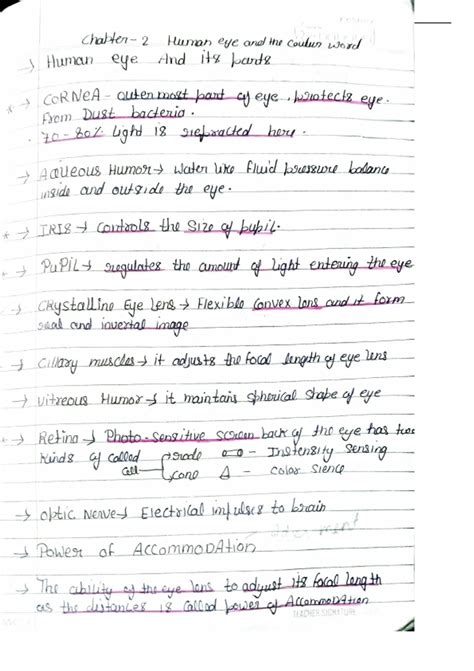 Chapter - 2 Human eye and the coulur word
→ Human eye And its parts
* → CORNeA - outermost part of eye, protects eye.
from Dust bacteria.
. 70 - 80% light is refracted here.
→ Aqueous Humor → water like fluid pressure balance
inside and outside the eye.
* → IRIS → controls the size of pupil.
→ PuPIL → regulates the amount of light entering the eye
→ CRystalline Eye lens → Flexible convex lens and it form
real and invertal image
→ Cillary muscles → it adjusts the focal length of eye lens
→ vitreous Humor → it maintais spherical shape of eye
→ Retina → Photo-sensitive screen back of the eye has two
kinds of called rode - Instensity sensing
Cell cone Δ - color Sience
→ optic Nerve → Electrical impulses to brain
→ Power of AccommodAtion
→ The ability of the eye lens to adjust its focal length
as the distances is called power of Accommodation
TEACHER SIGNATURE